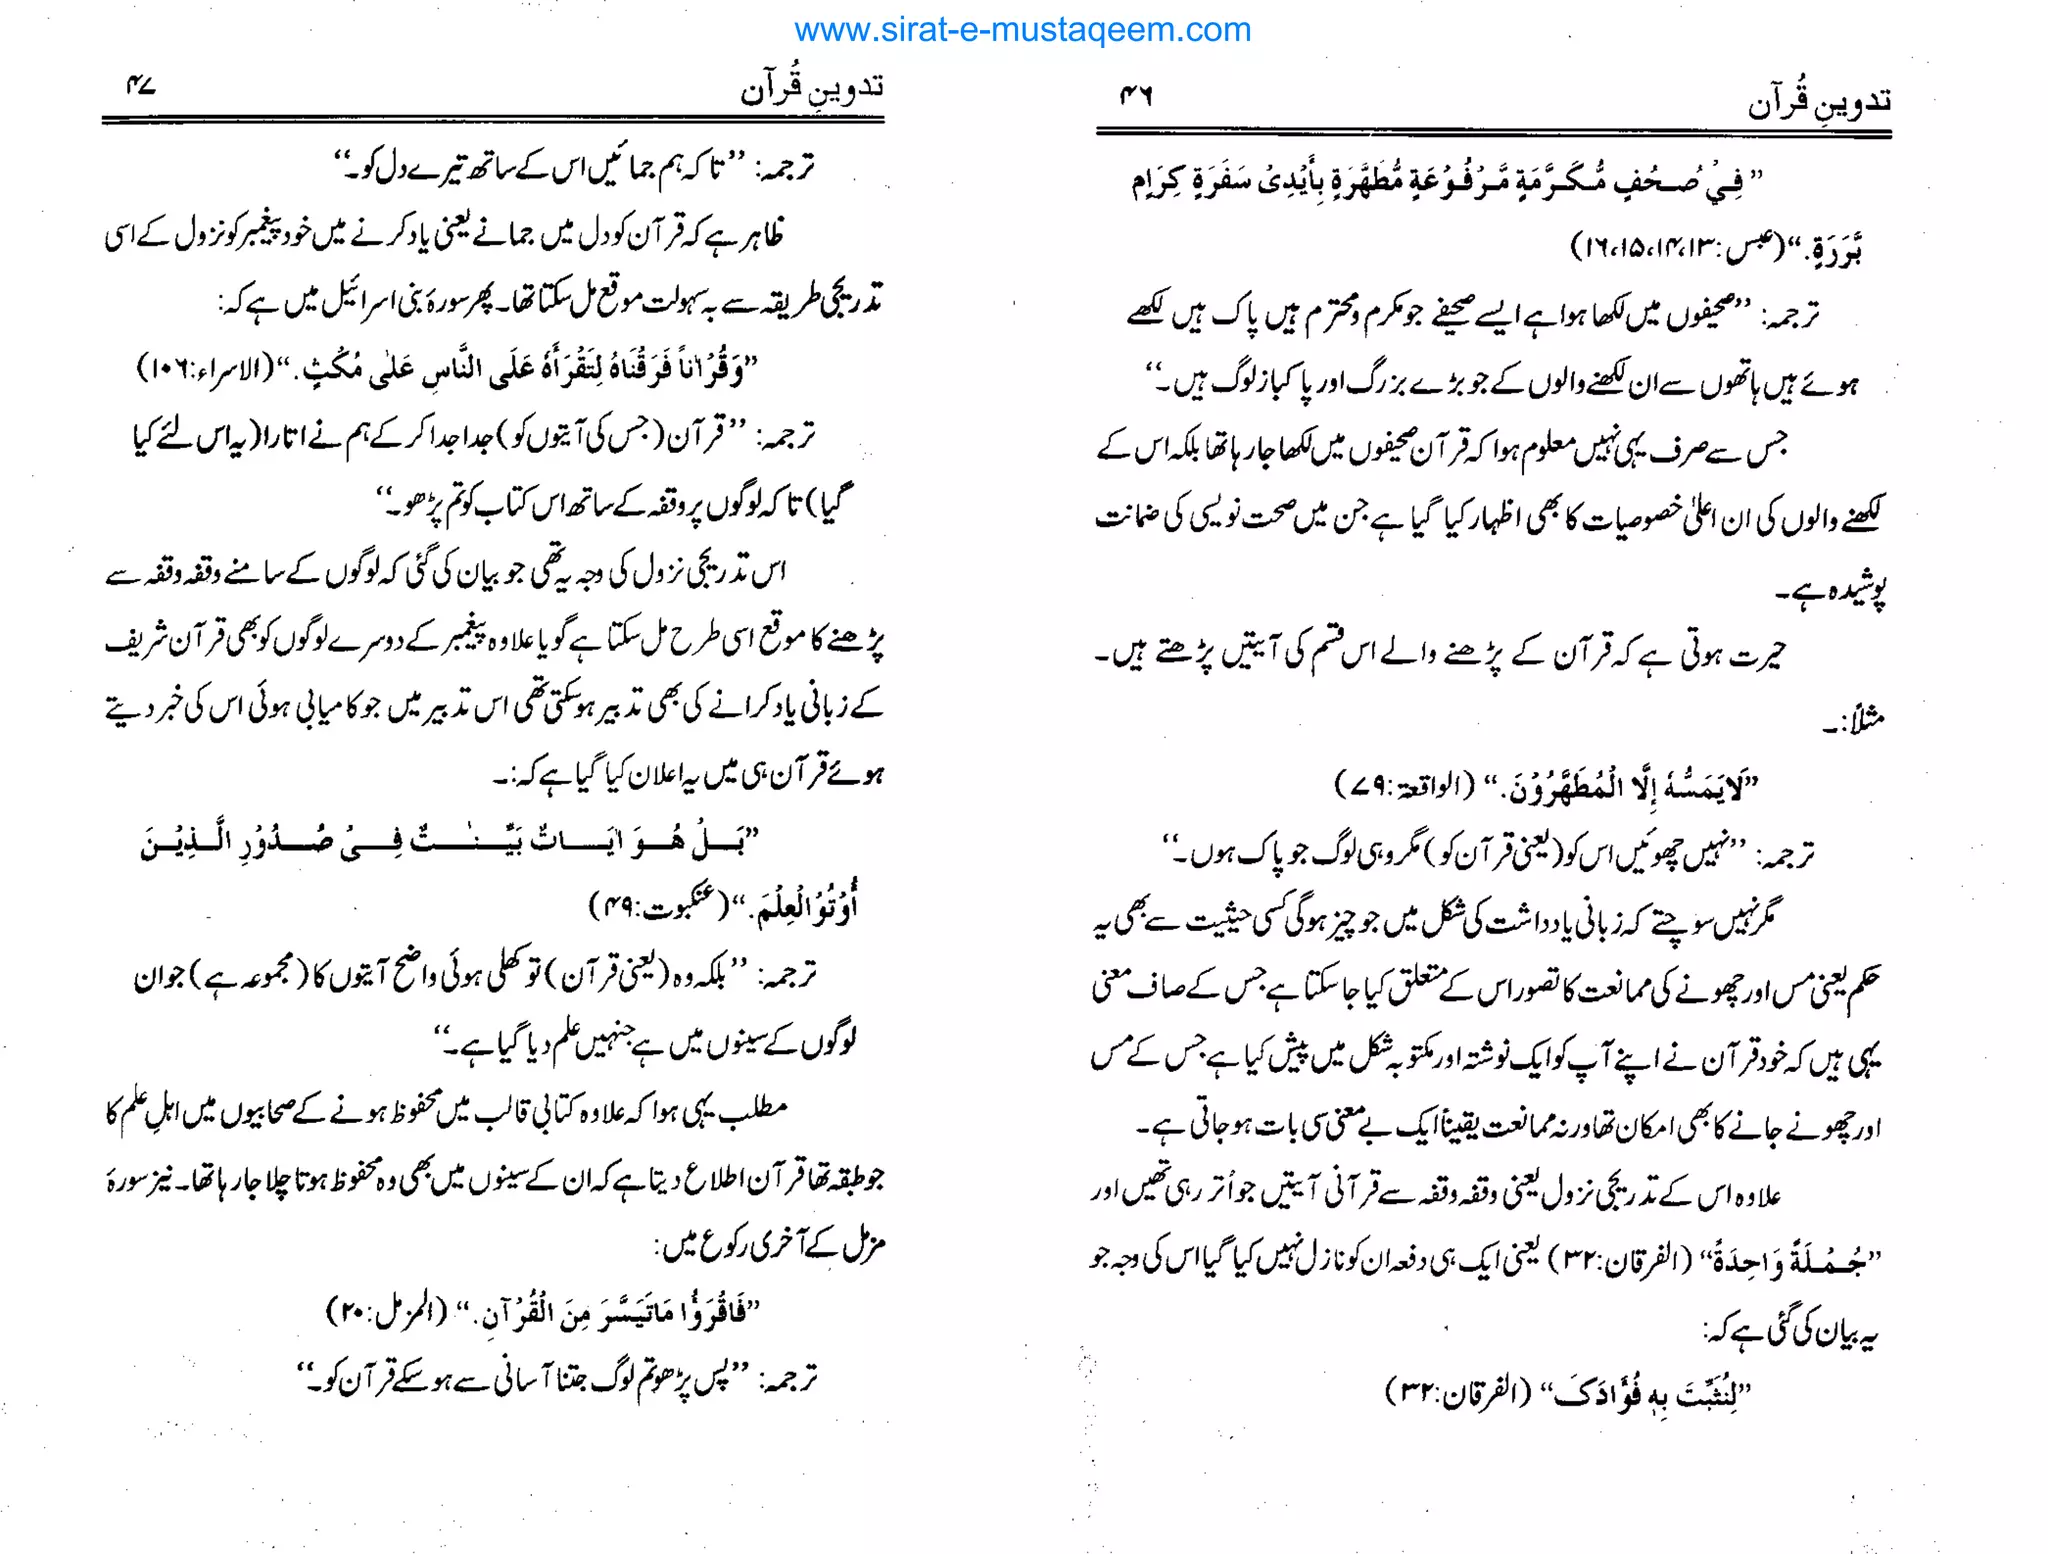 www.sirat-e-mustaqeem.com
تدوینِ قُرآن ۴۶
”فِیْ صُحُفٍ مُّکَرَّمَةٍ مَّرْفُوْعَةٍ مُّطَهَّرَةٍ بِأَیْدِیْ سَفَرَةٍ کِرَامٍ
بَّرَرَةٍ.“ (عبس: ۱۳،۱۴،۱۵،۱۶)
ترجمہ: ”صحیفوں میں لکھا ہوا ہے ایسے صحیفے جو مکرم و محترم ہیں پاک ہیں لکھے
ہوئے ہیں ہاتھوں سے ان لکھنے والوں کے جو بڑے بزرگ اور پاکباز لوگ ہیں۔“
جس سے صرف یہی نہیں معلوم ہوا کہ قرآن صحیفوں میں لکھا جا رہا تھا بلکہ اس کے
لکھنے والوں کی ان اعلیٰ خصوصیات کا بھی اظہار کیا گیا ہے جن میں صحت نویسی کی ضمانت
پوشیدہ ہے۔
حیرت ہوتی ہے کہ قرآن کے پڑھنے والے اس قسم کی آیتیں پڑھتے ہیں۔
مثلاً:۔
”لَایَمَسُّهٗ إِلَّا الْمُطَهَّرُوْنَ.“ (الواقعۃ: ۷۹)
ترجمہ: ”نہیں چھوئیں اس کو (یعنی قرآن کو) مگر وہی لوگ جو پاک ہوں۔“
مگر نہیں سوچتے کہ زبانی یادداشت کی شکل میں جو چیز ہوگی کسی حیثیت سے بھی یہ
حکم یعنی مس اور چھونے کی ممانعت کا تصور اس کے متعلق کیا جا سکتا ہے جس کے صاف معنی
یہی ہیں کہ خود قرآن نے اپنے آپ کو ایک نوشتہ اور مکتوبہ شکل میں پیش کیا ہے جس کے مس
اور چھونے جانے کا بھی امکان تھا ورنہ ممانعت یقیناً ایک بے معنی سی بات ہو جاتی ہے۔
علاوہ اس کے تدریجی نزول یعنی وقفہ وقفہ سے قرآنی آیتیں جو اُتر رہی تھیں اور
”جُمْلَةً وَاحِدَةً“ (الفرقان: ۳۲) یعنی ایک ہی دفعہ ان کو نازل نہیں کیا گیا اس کی وجہ جو
یہ بیان کی گئی ہے کہ:
”لِنُثَبِّتَ بِهٖ فُؤَادَکَ“ (الفرقان: ۳۲)
تدوینِ قُرآن ۴۷
ترجمہ: ”تا کہ ہم جمائیں اس کے ساتھ تیرے دل کو۔“
ظاہر ہے کہ قرآن کو دل میں جمانے یعنی یاد کرنے میں خود پیغمبر کو نزول کے اسی
تدریجی طریقہ سے بہ سہولت موقع مل سکتا تھا۔ پھر سورۂ بنی اسرائیل میں ہے کہ:
”وَقُرْاٰناً فَرَقْنَاهُ لِتَقْرَأَهٗ عَلَی النَّاسِ عَلٰی مُکْثٍ.“ (الاسراء: ۱۰۶)
ترجمہ: ”قرآن (جس کی آیتوں کو) جدا جدا کر کے ہم نے اتارا (یہ اس لئے کیا
گیا) تا کہ لوگوں پر وقفہ کے ساتھ اس کتاب کو تم پڑھو۔“
اس تدریجی نزول کی وجہ یہ تھی جو بیان کی گئی کہ لوگوں کے سامنے وقفہ وقفہ سے
پڑھنے کا موقع اسی طرح مل سکتا ہے گویا علاوہ پیغمبر کے دوسرے لوگوں کو بھی قرآن شریف
کے زبانی یاد کرانے کی بھی تدبیر ہو سکتی تھی اس تدبیر میں جو کامیابی ہوئی اس کی خبر دیتے
ہوئے قرآن ہی میں یہ اعلان کیا گیا ہے کہ:۔
”بَلْ هُوَ اٰیَاتٌ بَیِّنٰتٌ فِیْ صُدُوْرِ الَّذِیْنَ
أُوْتُوْالْعِلْمَ.“ (عنکبوت: ۴۹)
ترجمہ: ”بلکہ وہ (یعنی قرآن) تو کھلی ہوئی واضح آیتوں کا (مجموعہ ہے) جو ان
لوگوں کے سینوں میں ہے جنہیں علم دیا گیا ہے۔“
مطلب یہی ہوا کہ علاوہ کتابی قالب میں محفوظ ہونے کے صحابیوں میں اہلِ علم کا
جو طبقہ تھا قرآن اطلاع دیتا ہے کہ ان کے سینوں میں بھی وہ محفوظ ہوتا چلا جا رہا تھا۔ نیز سورۂ
مزمل کے آخری رکوع میں:
”فَاقْرَؤُا مَاتَیَسَّرَ مِنَ الْقُرْآنِ.“ (المزمل: ۲۰)
ترجمہ: ”پس پڑھو تم لوگ جتنا آسانی سے ہو سکے قرآن کو۔“